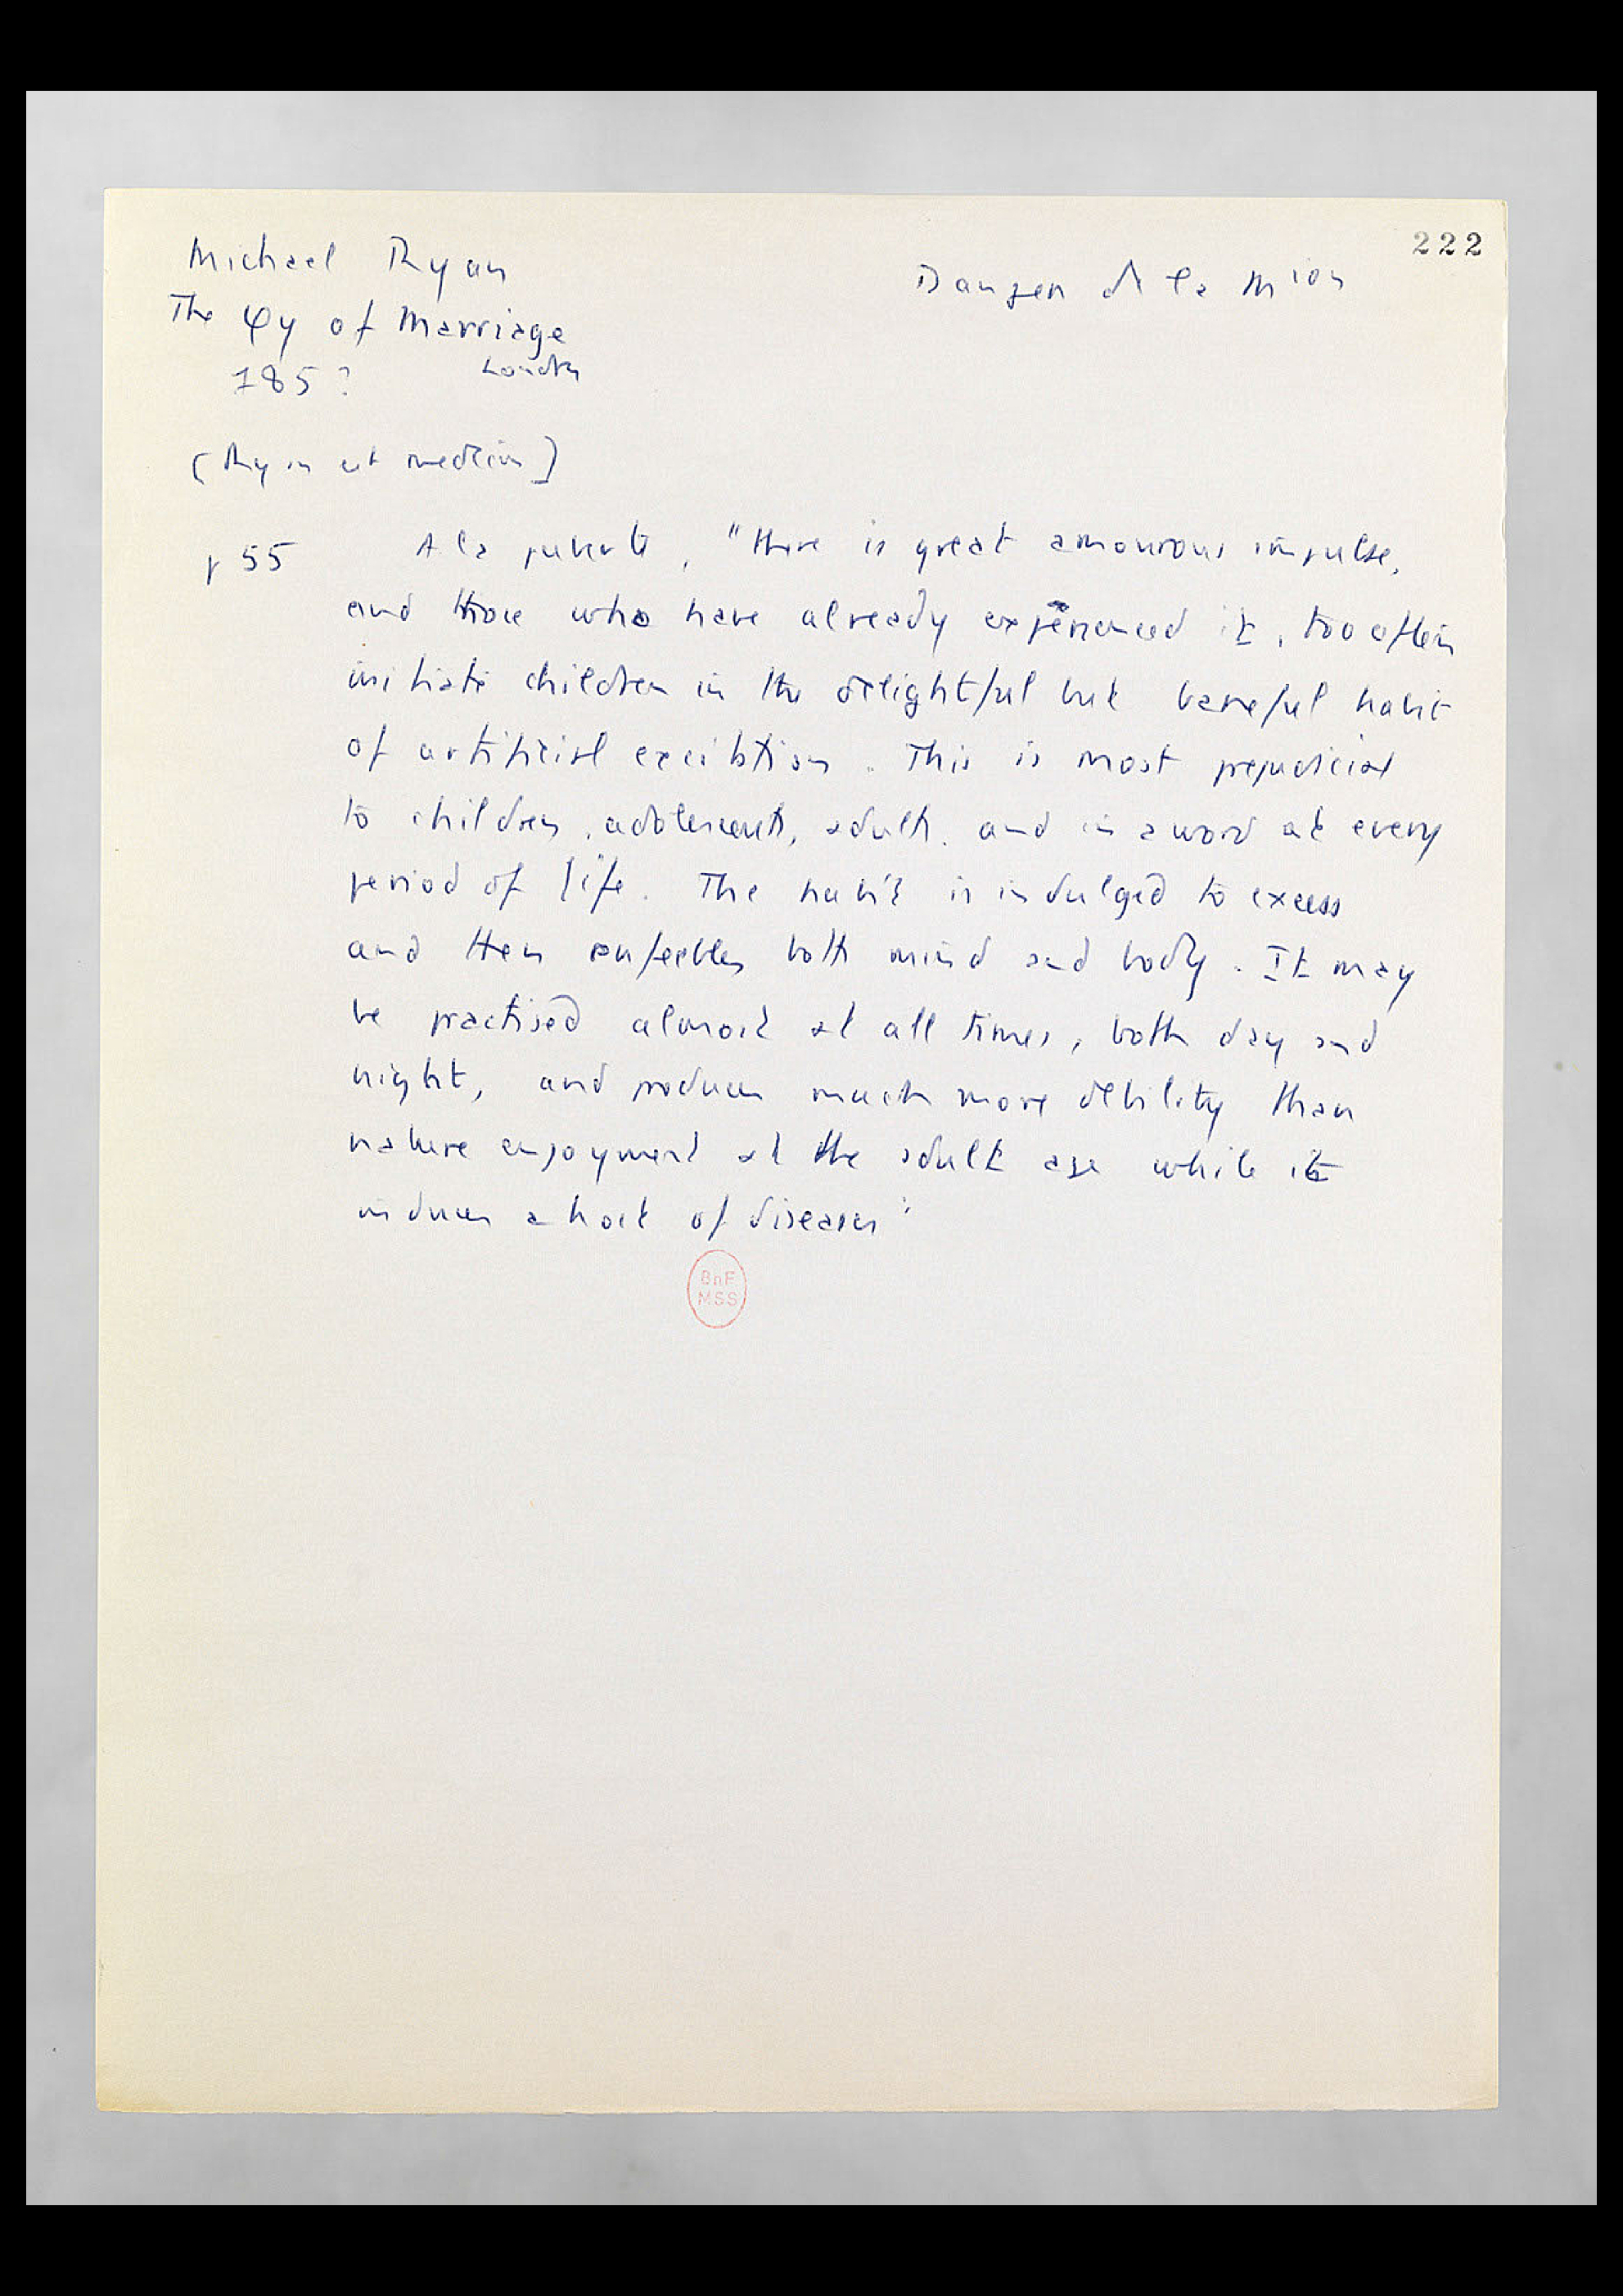 222
Michael Ryan
Dangers de la Mion
The φy of Marriage
185? Londres
(Ryan est médecin)
p 55 A la puberté, "there is great amourous impulse,
and those who have already experienced it, too often
initiate children in the delightful but baneful habit
of artificial excitation. This is most prejudicial
to children, adolescents, adults, and in a word at every
period of life. The habit is indulged to excess
and then enfeebles both mind and body. It may
be practised almost at all times, both day and
night, and produces much more debility than
nature enjoyment at the adult age while it
induces a host of diseases"
BnF
MSS